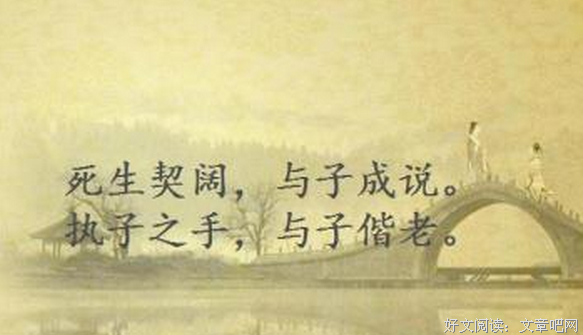 死生契阔，与子成说。
执子之手，与子偕老。
好文阅读：文章吧网